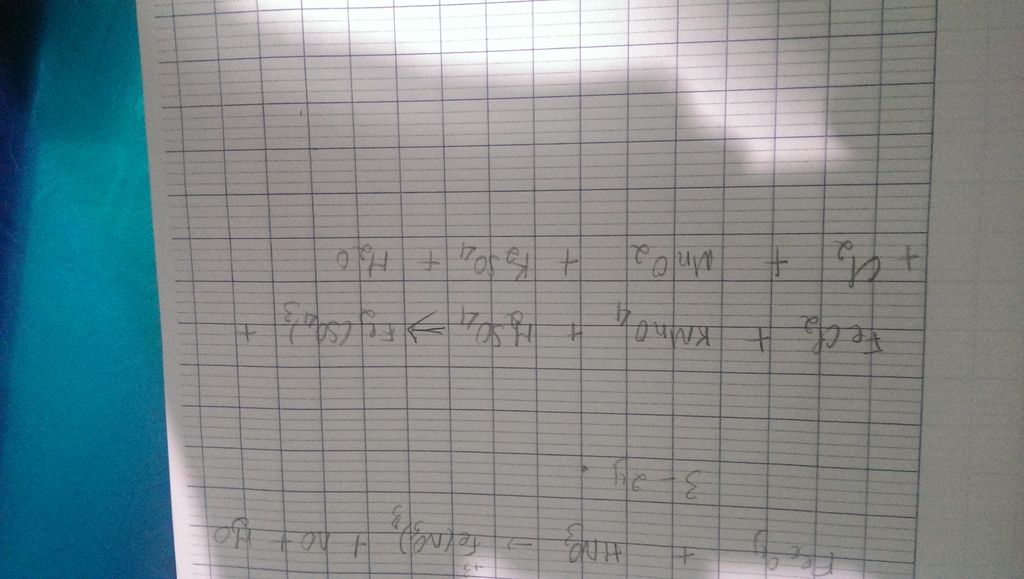 +3
FexOy + HNO3 → Fe(NO3)3 + NO + H2O
3 - 2y
FeCl2 + KMnO4 + H2SO4 → Fe2(SO4)3 +
+ Cl2 + MnO2 + K2SO4 + H2O